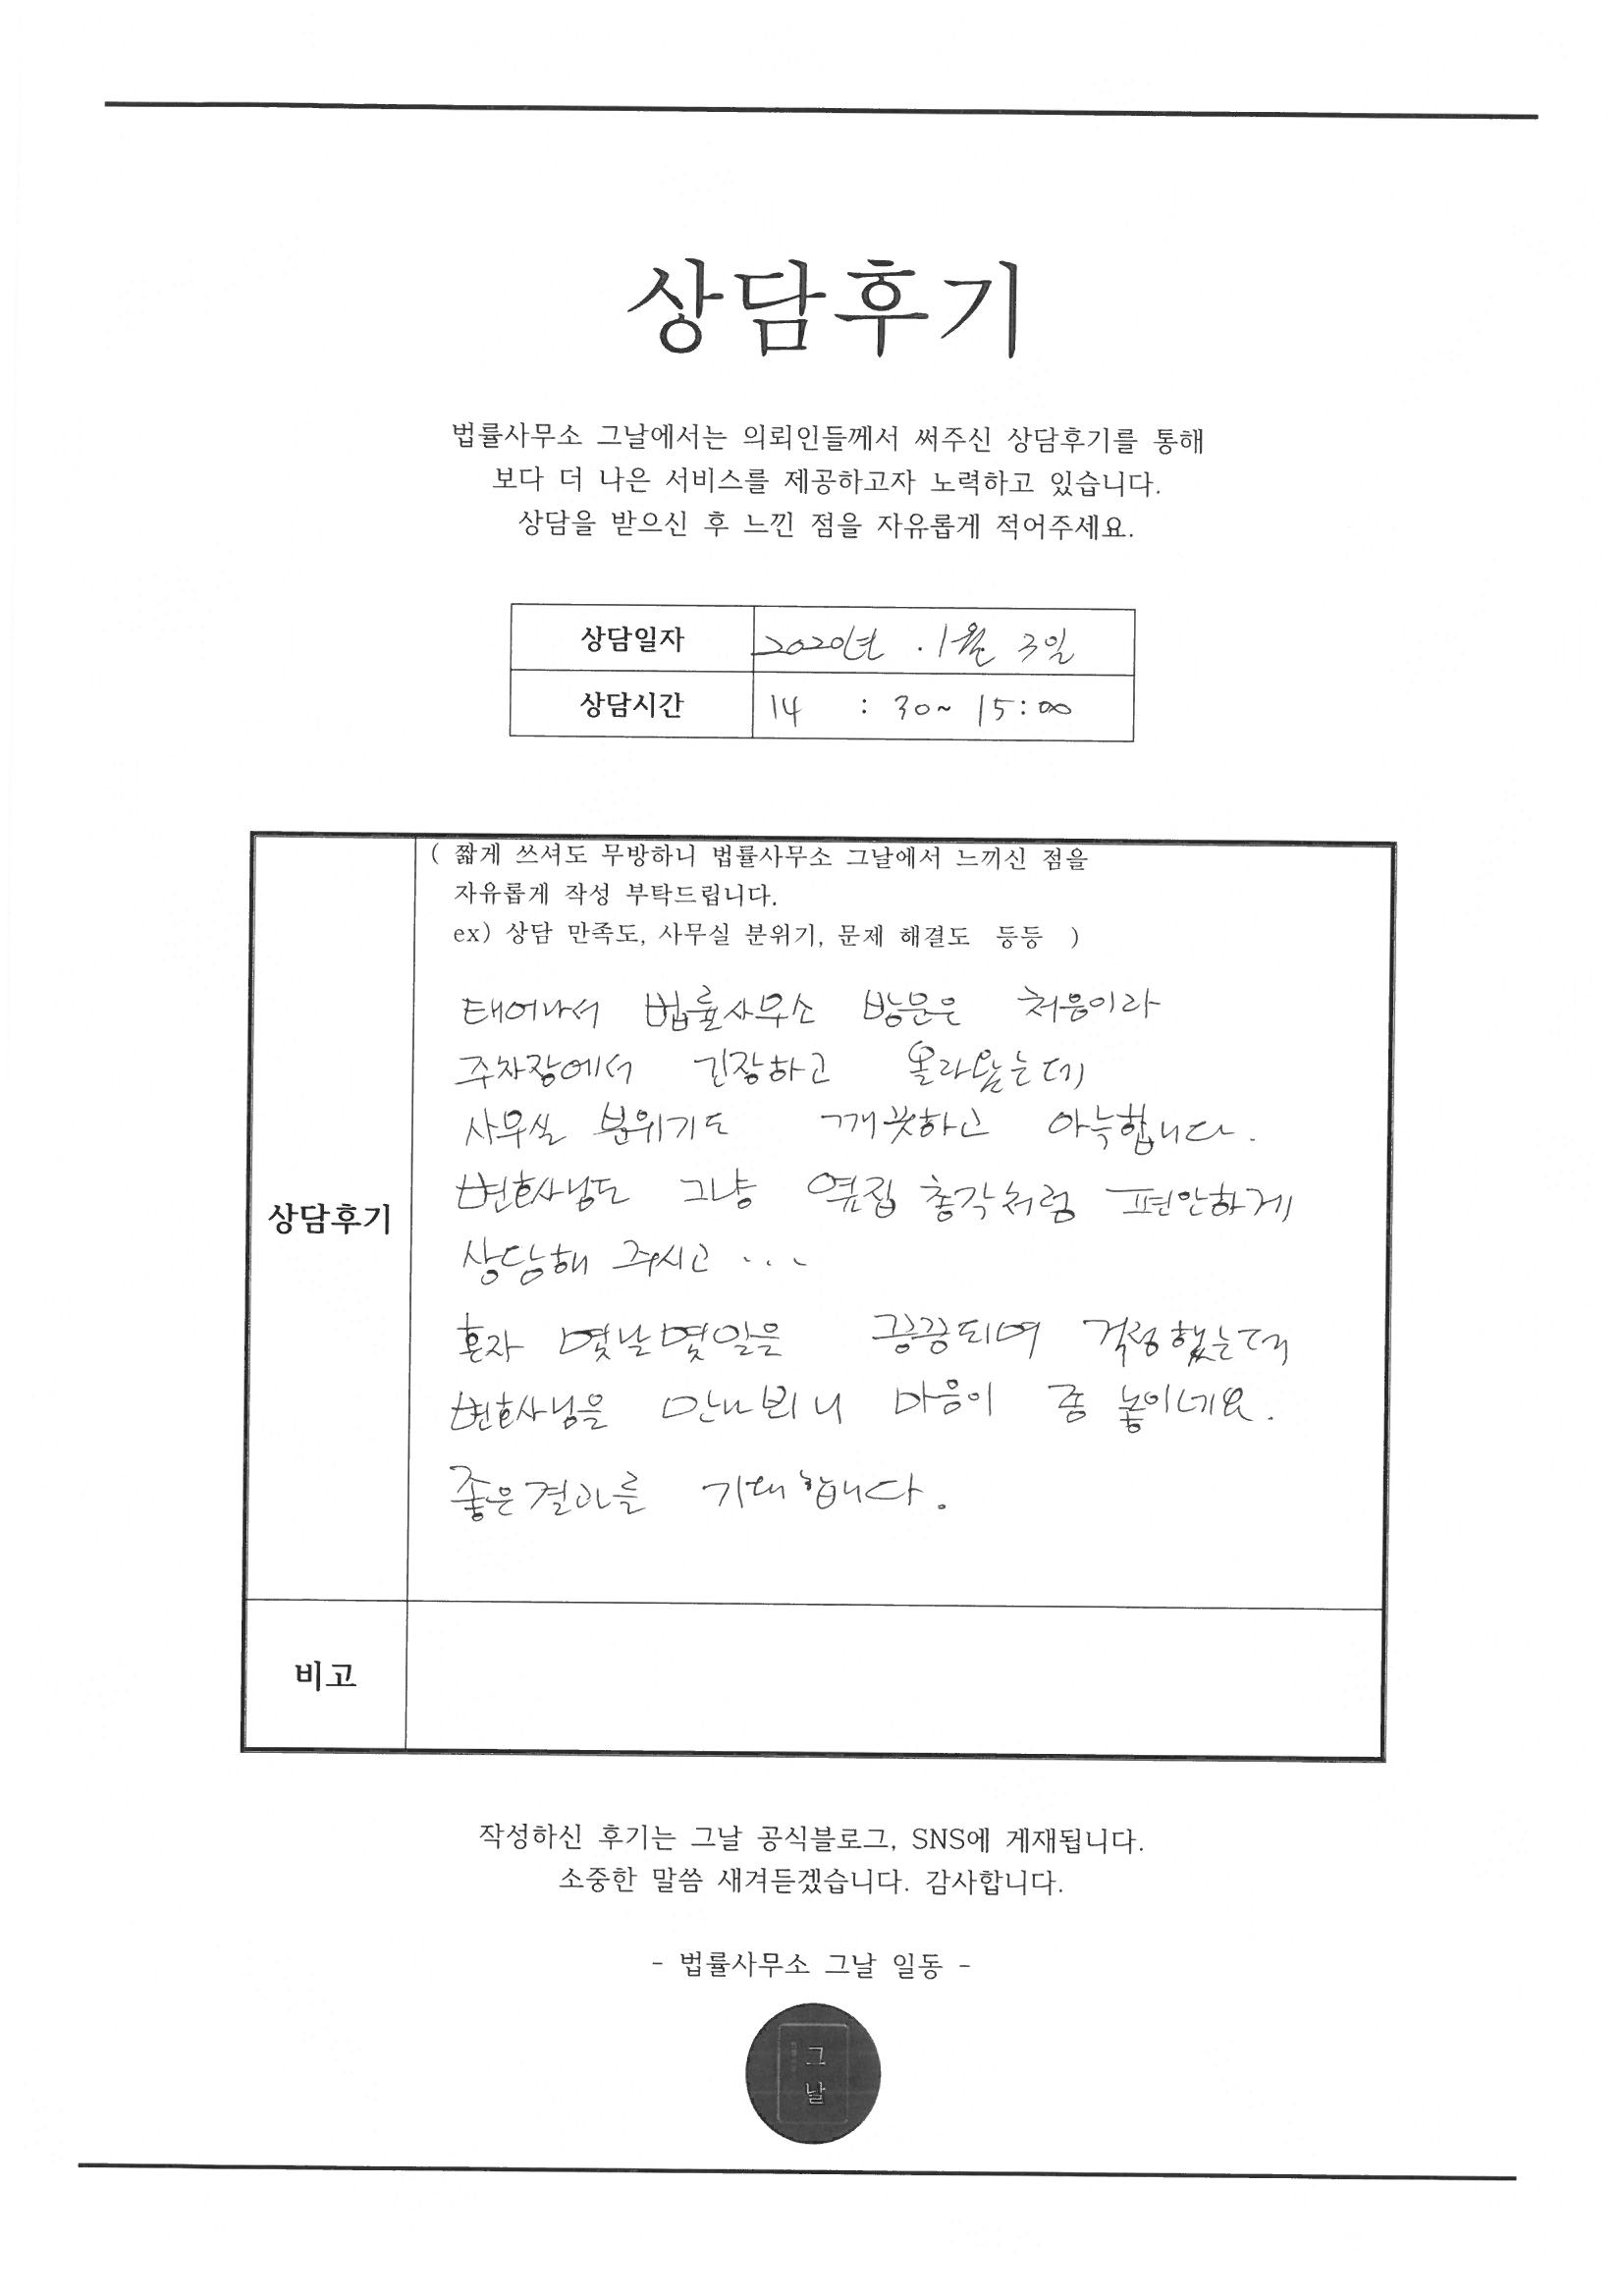 상담후기
법률사무소 그날에서는 의뢰인들께서 써주신 상담후기를 통해
보다 더 나은 서비스를 제공하고자 노력하고 있습니다.
상담을 받으신 후 느낀 점을 자유롭게 적어주세요.
상담일자 2020년 . 1월 3일
상담시간 14 : 30~ 15:00
( 짧게 쓰셔도 무방하니 법률사무소 그날에서 느끼신 점을
자유롭게 작성 부탁드립니다.
ex) 상담 만족도, 사무실 분위기, 문제 해결도 등등 )
상담후기
태어나서 법률사무소 방문은 처음이라
주차장에서 긴장하고 올라왔는데
사무실 분위기도 깨끗하고 아늑합니다.
변호사님도 그냥 옆집 총각처럼 편안하게
상담해 주시고 ...
혼자 몇날몇일을 끙끙되며 걱정했는데
변호사님을 만나뵈니 마음이 좀 놓이네요.
좋은결과를 기대합니다.
비고
작성하신 후기는 그날 공식블로그, SNS에 게재됩니다.
소중한 말씀 새겨듣겠습니다. 감사합니다.
- 법률사무소 그날 일동 -
그
날